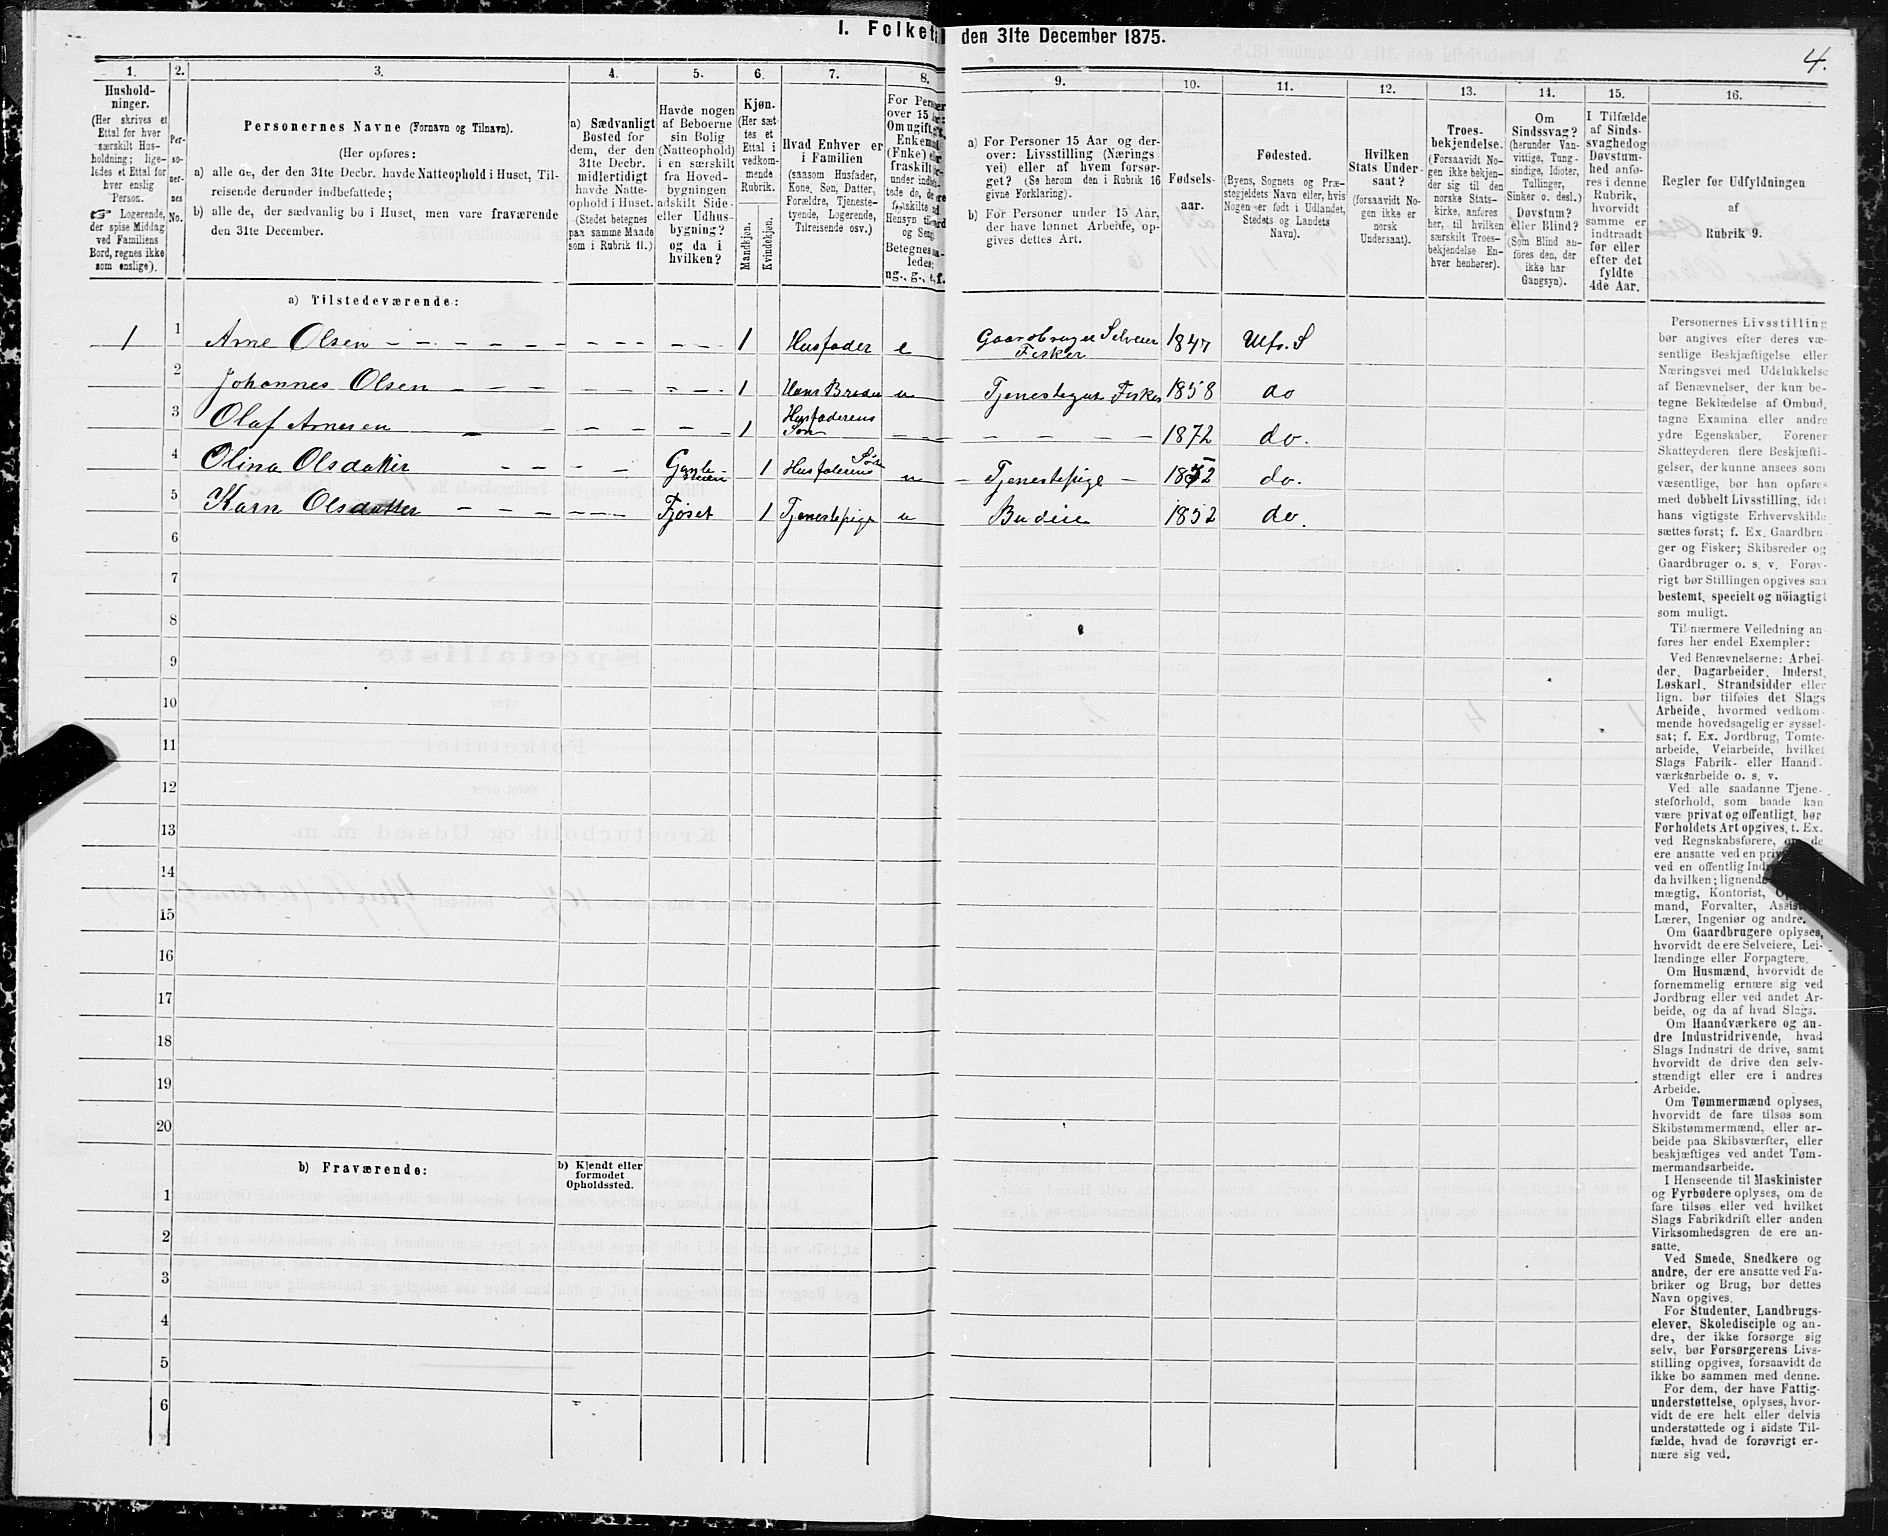 I. Folketal den 31te December 1875.
4.
1.
Hushold-
ninger.
(Her skrives et
Ettal for hver
særskilt Hus-
holdning; lige-
ledes et Ettal for
hver enslig
Person.
Logerende,
der spise Middag
ved Familiens
Bord, regnes ikke
som enslige).
2.
Per-
so-
ner-
nes
No.
3.
Personernes Navne (Fornavn og Tilnavn).
(Her opføres:
a) alle de, der den 31te Decbr. havde Natteophold i Huset, Til-
reisende derunder indbefattede;
b) alle de, der sædvanlig bo i Huset, men vare fraværende
den 31te December.
4.
a) Sædvanligt
Bosted for
dem, der den
31te Decbr.
midlertidigt
havde Natte-
ophold i Huset.
(Stedet betegnes
paa samme Maade
som i Rubrik 11.)
5.
Havde nogen
af Beboerne
sin Bolig
(Natteophold)
i en særskilt
fra Hoved-
bygningen
adskilt Side-
eller Udhus-
bygning?
og da i
hvilken?
6.
Kjøn.
(Her sæt-
tes et
Ettal i
vedkom-
mende
Rubrik.
Mandkjøn.
Kvindekjøn.
7.
Hvad Enhver er
i Familien
(saasom Husfader,
Kone, Søn, Datter,
Forældre, Tjeneste-
tyende, Logerende,
Tilreisende osv.)
8.
For
over 15
Om ugift,
Enkem
(Enke)
fraskilt
ng., g., e, f.
9.
a) For Personer 15 Aar og der-
over: Livsstilling (Nærings
vei) eller af hvem forsør-
get? (Se herom den i Rubrik 16
givne Forklaring).
b) For Personer under 15 Aar,
der have lønnet Arbeide, op-
gives dettes Art.
10.
Fødsels-
aar.
11.
Fødested.
(Byens, Sognets og Præ-
stegjeldets Navn eller, hvis
Nogen er født i Udlandet,
Stedets og Landets
Navn).
12.
Hvilken
Stats Under-
saat?
(forsaavidt No-
gen ikke er
norsk
Undersaat).
13.
Troes-
bekjendelse.
(Forsaavidt No-
gen ikke bekjen-
der sig til den
norske Stats-
kirke, anføres
her, til hvilken
særskilt Troes-
bekjendelse En-
hver henhører).
14.
Om
Sindssvag?
(herunder Van-
vittige, Tung-
sindige, Idioter,
Tullinger,
Sinker o. desl.)
Døvstum?
eller Blind?
(Som Blind an-
føres den, der
ikke har
Gangsyn).
15.
I Tilfælde
af Sinds-
svaghed og
Døvstum-
hed anfø-
res i denne
Rubrik,
hvorvidt
samme er
indtraadt
før eller
efter det
fyldte
4de Aar.
16.
Regler for Udfyldningen
af
Rubrik 9.
a) Tilstedeværende:
1 1 Arne Olsen 1 Husfader e Gaardbruger Selveier Fisker 1847 Ulfs. S
2 Johannes Olsen 1 Hans Broder u Tjenestegut Fisker 1858 do
3 Olaf Arnesen 1 Husfaderens Søn 1872 do.
4 Olina Olsdatter 1 Husfaderens u Tjenestepige 1852 do.
5 Karn Olsdatter Fjøset 1 Tjenestepige u Budeie 1852 do.
6
7
8
9
10
11
12
13
14
15
16
17
18
19
20
b) Fraværende:
b) Kjendt eller
formodet
Opholdssted.
1
2
3
4
5
6
Personernes Livsstilling
bør angives efter deres væ-
sentlige Beskjæftigelse eller
Næringsvei med Udelukkelse
af Benævnelser, der kun be-
tegne Beklædelse af Ombud,
tagne Examina eller andre
ydre Egenskaber. Forener
Skatteyderen flere Beskjæfti-
gelser, der kunne ansees som
væsentlige, bør han opføres
med dobbelt Livsstilling, idet
hans vigtigste Erhvervskilde
sættes først; f. Ex. Gaardbru-
ger og Fisker; Skibsreder og
Gaardbruger o. s. v. Forøv-
rigt bør Stillingen opgives saa
bestemt, specielt og nöiagtigt
som muligt.
Til nærmere Veiledning an
føres her endel Exempler:
Ved Benævnelserne: Arbei-
der, Dagarbeider, Inderst,
Løskarl, Strandsidder eller
lign. bør tilføies det Slags
Arbeide, hvormed vedkom-
mende hovedsagelig er syssel-
sat; f. Ex. Jordbrug, Tomte-
arbeide, Veiarbeide, hvilket
Slags Fabrik- eller Haand-
værksarbeide o. s. v.
Ved alle saadanne Tjene-
steforhold, som baade kan
være privat og offentligt, bør
Forholdets Art opgives, t. Ex.
ved Regnskabsførere, om de
ere ansatte ved en
ved en offentlig
da hvilken; lignende
mægtig, Kontorist,
mand, Forvalter,
Lærer, Ingeniør og andre.
Om Gaardbrugere oplyses,
hvorvidt de ere Selveiere, Lei-
lændinge eller Forpagtere.
Om Husmænd, hvorvidt de
fornemmelig ernære sig ved
Jordbrug eller ved andet Ar-
beide, og da af hvad Slags.
Om Haandværkere og an-
dre Industridrivende, hvad
Slags Industri de drive, samt
hvorvidt de drive den selv-
stændigt eller ere i andres
Arbeide.
Om Tømmermænd oplyses,
hvorvidt de fare tilsøs som
Skibstømmermænd, eller ar-
beide paa Skibsværfter, eller
beskjæftiges ved andet Tøm-
mermandsarbeide.
I Henseende til Maskinister
og Fyrbødere oplyses, om de
fare tilsøs eller ved hvilket
Slags Fabrikdrift eller anden
Virksomhedsgren de ere an-
satte.
Ved Smede, Snedkere og
andre, der ere ansatte ved Fa-
briker og Brug, bør dettes
Navn opgives.
For Studenter, Landbrugs-
elever, Skoledisciple og an-
dre, der ikke forsørge sig
selv, bør Forsørgerens Livs-
stilling opgives, forsaavidt de
ikke bo sammen med denne.
For dem, der have Fattig-
understøttelse, oplyses, hvor-
vidt de ere helt eller delvis
understøttede og i sidste Til-
fælde, hvad de forøvrigt er-
nære sig ved.